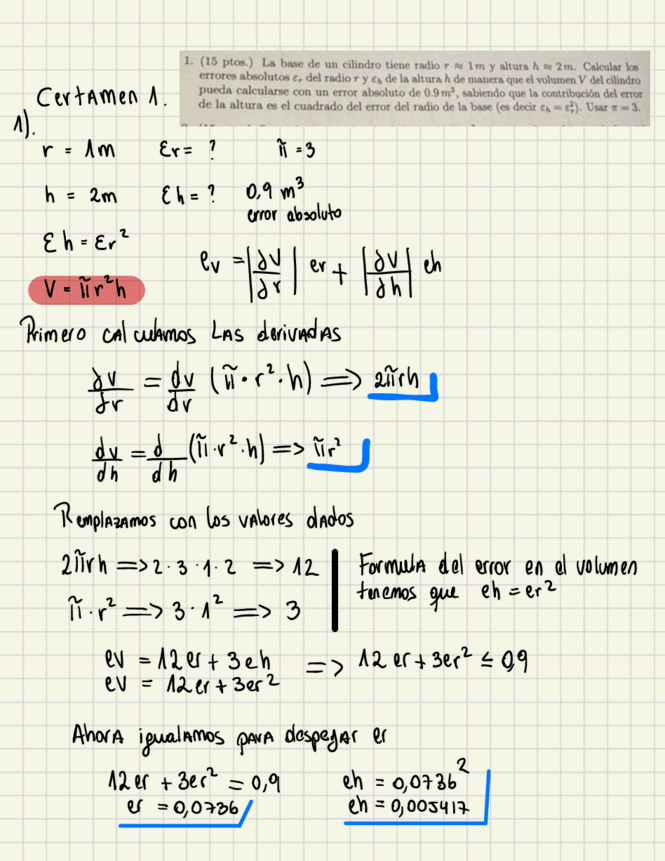 1. (15 ptos.) La base de un cilindro tiene radio r ≈ 1 m y altura h ≈ 2m. Calcular los
errores absolutos εr del radio r y εh de la altura h de manera que el volumen V del cilindro
pueda calcularse con un error absoluto de 0.9 m³, sabiendo que la contribución del error
de la altura es el cuadrado del error del radio de la base (es decir εh = εr²). Usar π = 3.
Certamen 1.
1).
r = 1m εr = ? π = 3
h = 2m εh = ? 0,9 m³
error absoluto
εh = εr²
ev = |∂V/∂r| er + |∂V/∂h| eh
V = πr²h
Primero calculamos las derivadas
∂v/∂r = dv/dr (π · r² · h) => 2πrh
dv/dh = d/dh (π · r² · h) => πr²
Remplazamos con los valores dados
2πrh => 2 · 3 · 1 · 2 => 12
π · r² => 3 · 1² => 3
Formula del error en el volumen
tenemos que eh = er²
ev = 12er + 3eh => 12er + 3er² ≤ 0,9
ev = 12er + 3er²
Ahora igualamos para despejar er
12er + 3er² = 0,9 eh = 0,0736²
er = 0,0736 eh = 0,005417